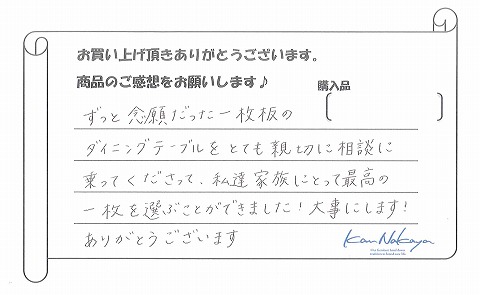 お買い上げ頂きありがとうございます。
商品のご感想をお願いします♪
購入品
ずっと念願だった一枚板の
ダイニングテーブルをとても親切に相談に
乗ってくださって、私達家族にとって最高の
一枚を選ぶことができました!大事にします!
ありがとうございます
Kan Nakaya